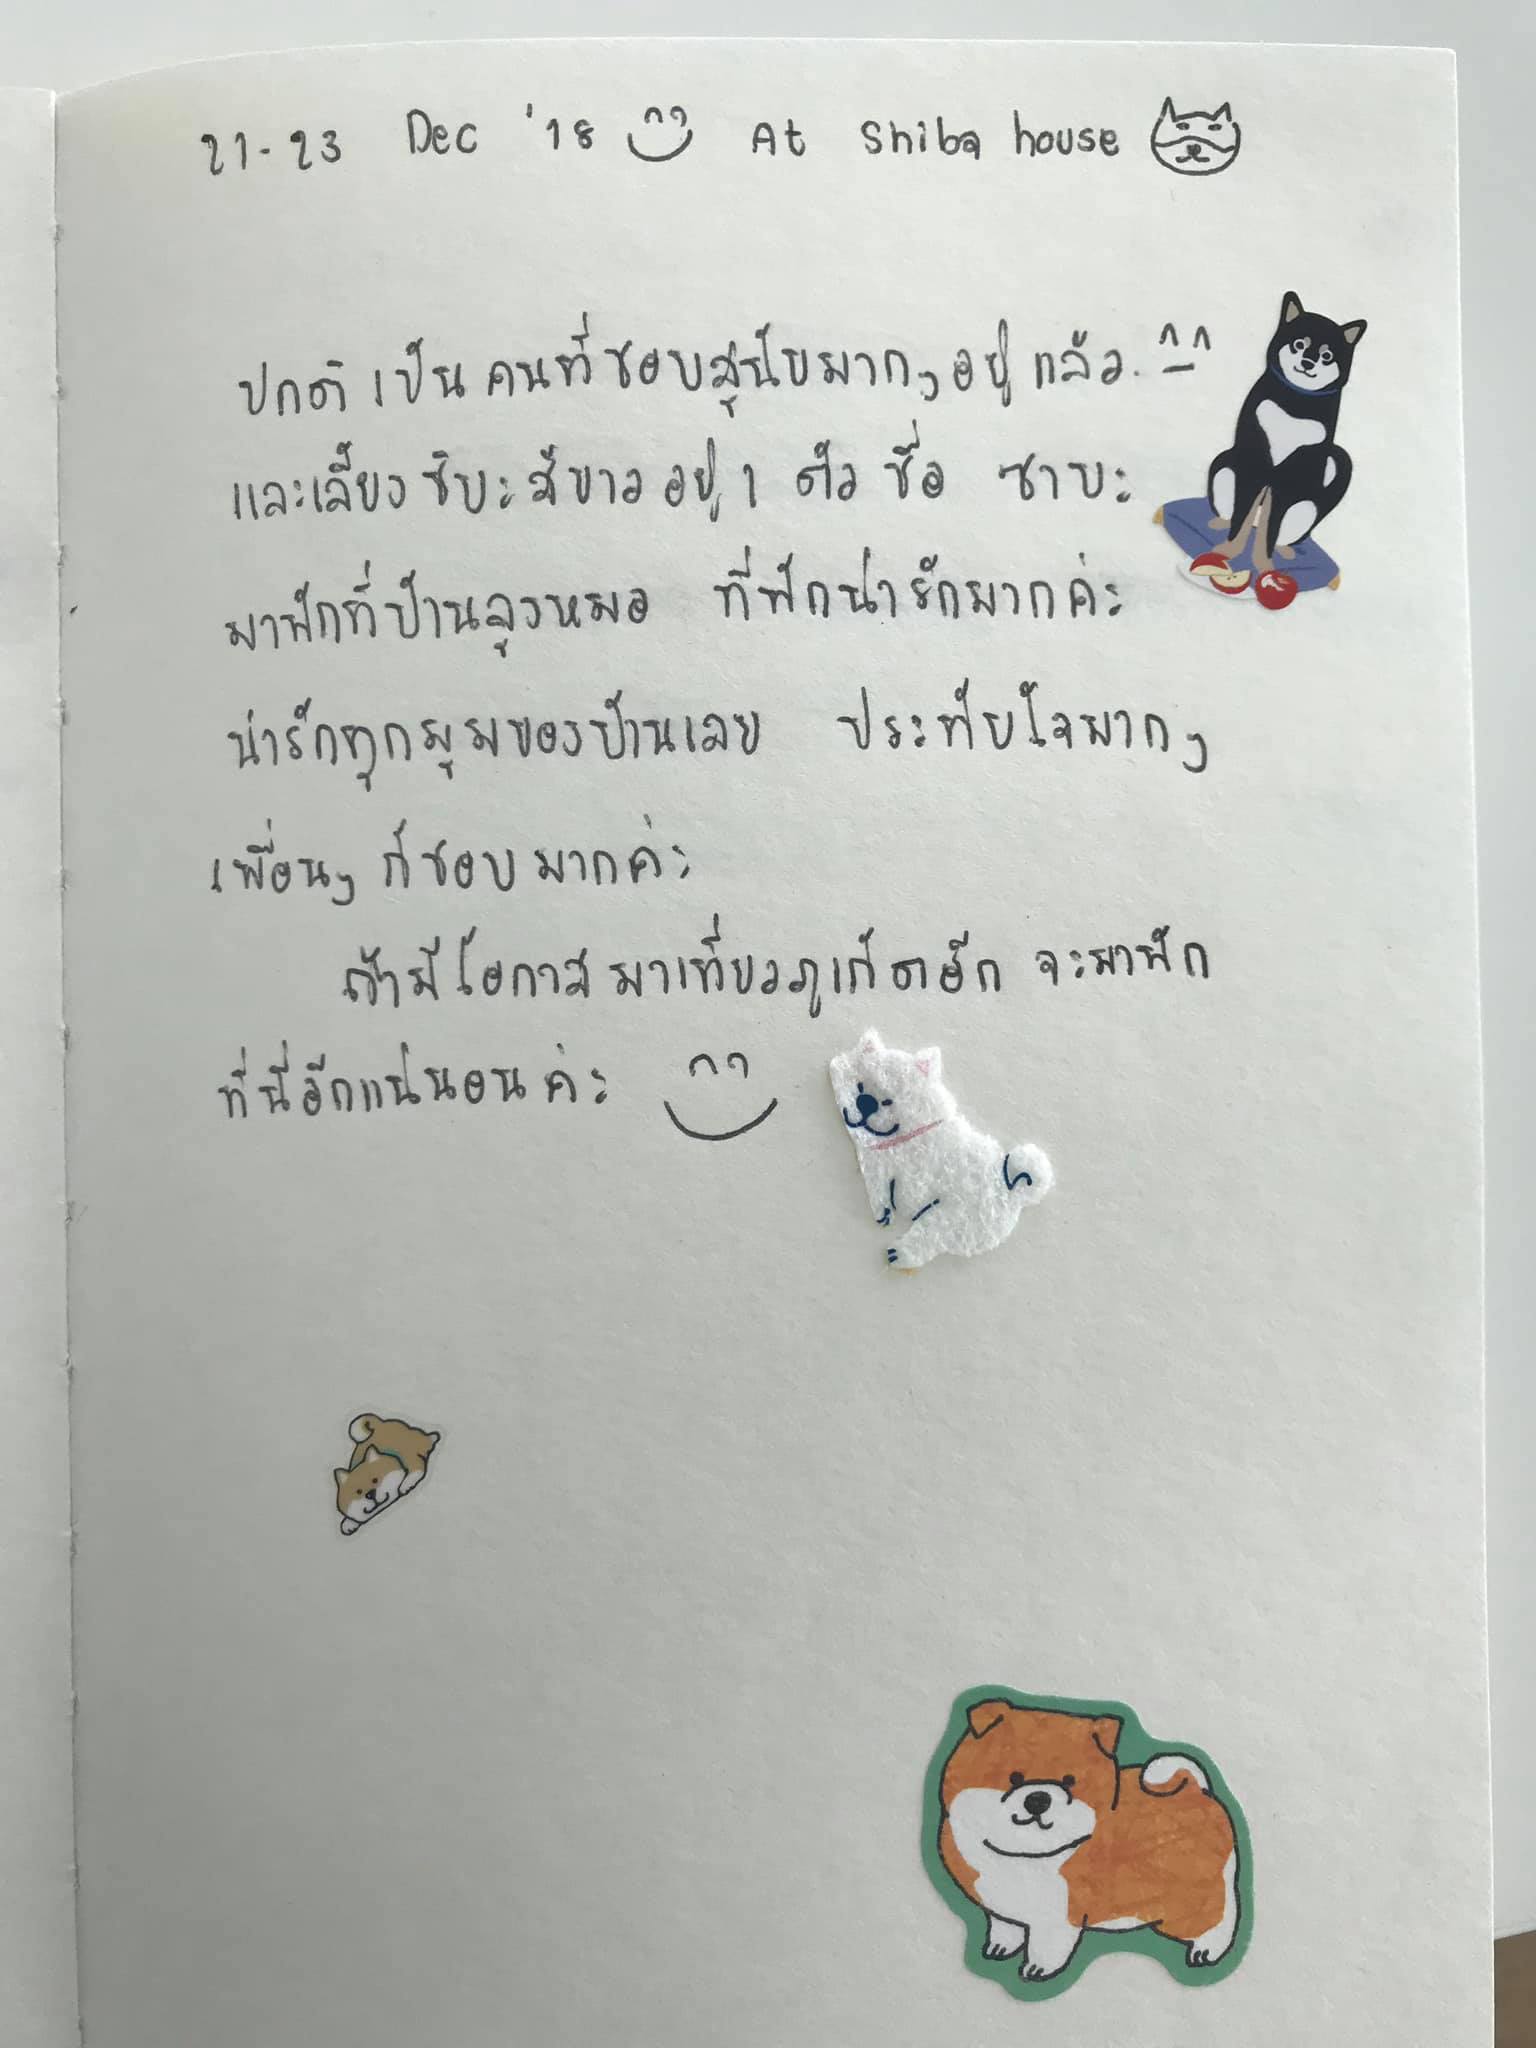 21-23 Dec '18 At Shiba house
ปกติเป็นคนที่ชอบสุนัขมากๆอยู่แล้ว.
และเลี้ยงชิบะสีขาวอยู่ 1 ตัว ชื่อ ซาบะ
มาพักที่บ้านลุงหมอ ที่พักน่ารักมากค่ะ
น่ารักทุกมุมของบ้านเลย ประทับใจมากๆ
เพื่อนๆ ก็ชอบมากค่ะ
ถ้ามีโอกาสมาเที่ยวภูเก็ตอีก จะมาพัก
ที่นี่อีกแน่นอนค่ะ